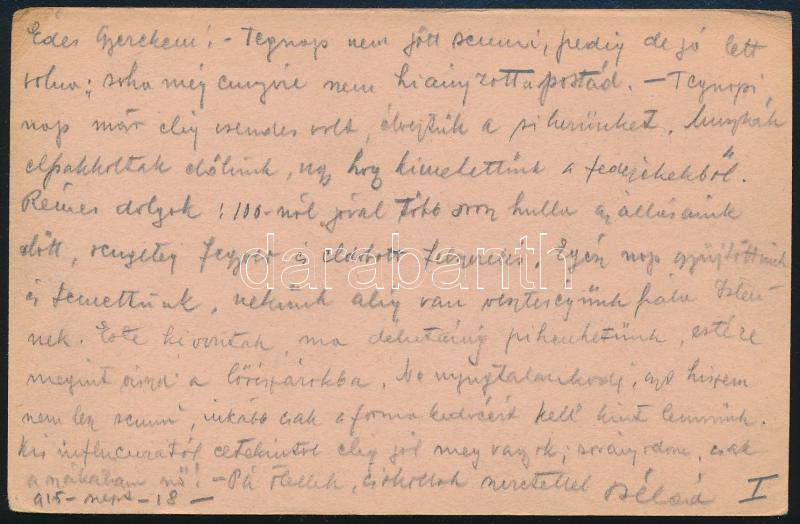 Édes Gyerekem! - Tegnap nem jött semmi, pedig de jó lett
volna; soha még ennyire nem hiányzott a postád. - Tegnapi
nap már elég csendes volt, élvejtük a sikerünket. Muszkák
elpakkoltak előlünk, úgy hogy kimehettünk a fedezékekből.
Rémes dolgok! 100-nál jóval több orosz hulla az állásaink
előtt, rengeteg fegyver és eldobott felszerelés. Egész nap gyűjtöttünk
és temettünk, nekünk alig van veszteségünk hála Isten-
nek. Este kivontak, ma délutánig pihenhetünk, estére
megint vissza a lövészárokba. Ne nyugtalankodj, azt hiszem
nem lesz semmi, inkább csak a forma kedvéért kell kint lennünk.
Kis influenzától eltekintve elég jól meg vagyok; soványodom, csak
a szakállam nő! - Pá ölellek, csókollak szeretettel Bélád I
915-szept-18-
darabanth